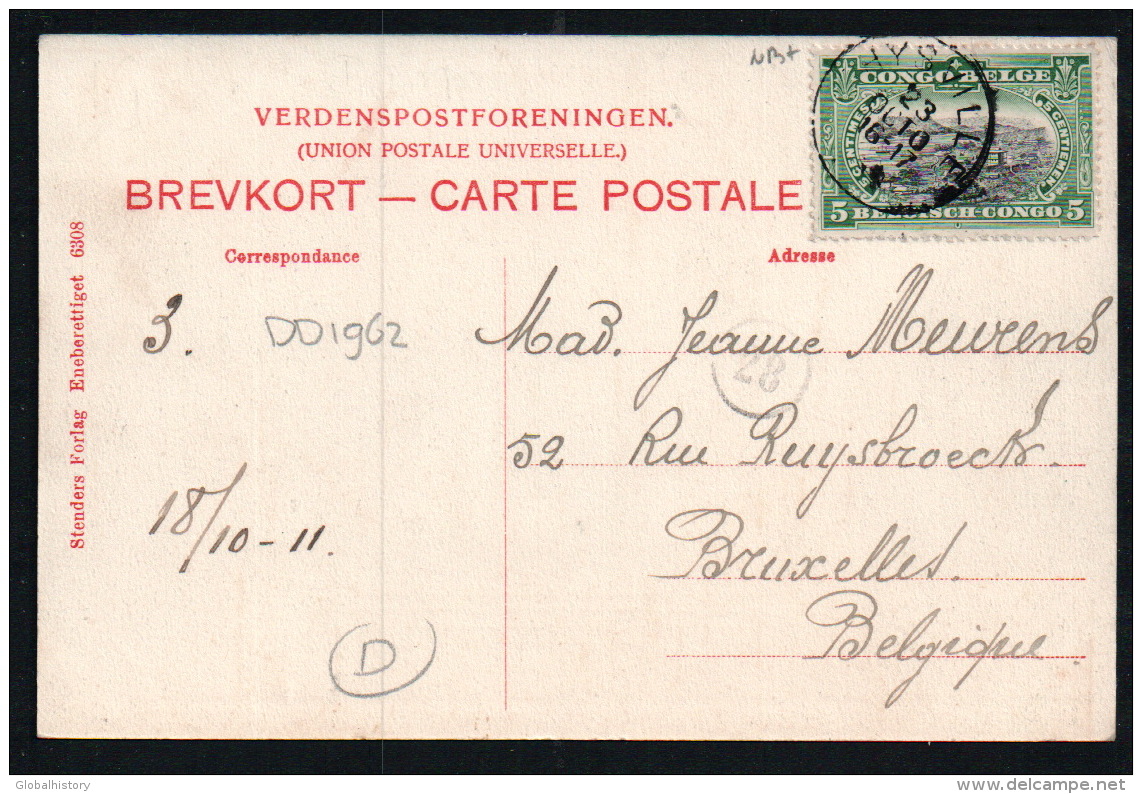 NB+
VERDENSPOSTFORENINGEN.
(UNION POSTALE UNIVERSELLE.)
BREVKORT — CARTE POSTALE
CONGO BELGE
5 CENTIMES
5 CENTIEMEN
5 BELGISCH-CONGO 5
23
OCTO
16-17
Correspondance
Adresse
Stenders Forlag Eneberettiget 6308
3.
DD1962
Mad. Jeanne Meurens
28
52 Rue Ruysbroeck.
18/10-11.
Bruxelles.
Belgique.
D
Globalhistory
www.delcampe.net